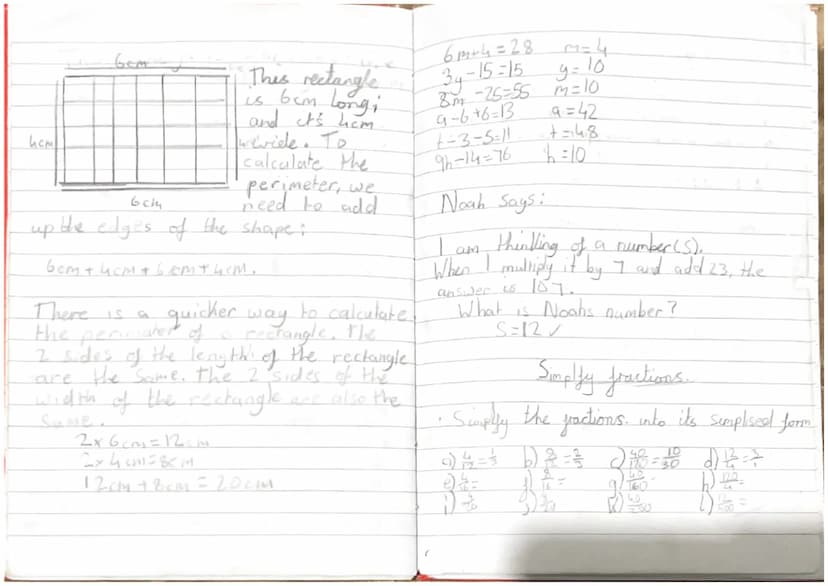 6cm
This rectangle
is 6cm long;
and it's 4cm
wide. To
4cm
calculate the
perimeter, we
6cm
need to add
up the edges of the shape:
6cm + 4cm + 6cm + 4cm.
There is a quicker way to calculate
the perimater of a rectrangle. The
2 sides of the length of the rectangle
are the same. The 2 sides of the
width of the rectangle are also the
same.
2x 6cm = 12cm
2x 4cm = 8cm
12cm + 8cm = 20cm
6m+4=28 m=4
3y-15=15 y=10
8m-25=55 m=10
a-6+6=13 a=42
t-3-5=11 t=48
9h-14=76 h=10
Noah says:
I am thinking of a number(S).
When I multiply it by 7 and add 23, the
answer is 107.
What is Noahs number?
S=12 ✓
Simplfy fractions.
· Simplfy the fractions into its simplised form
a) 4/12 = 1/3 b) = 2/3 c) = 10/30 d) 12/4 = 3/1
e) = f) = g) 40/160 = h) =
i) j) k) l) =